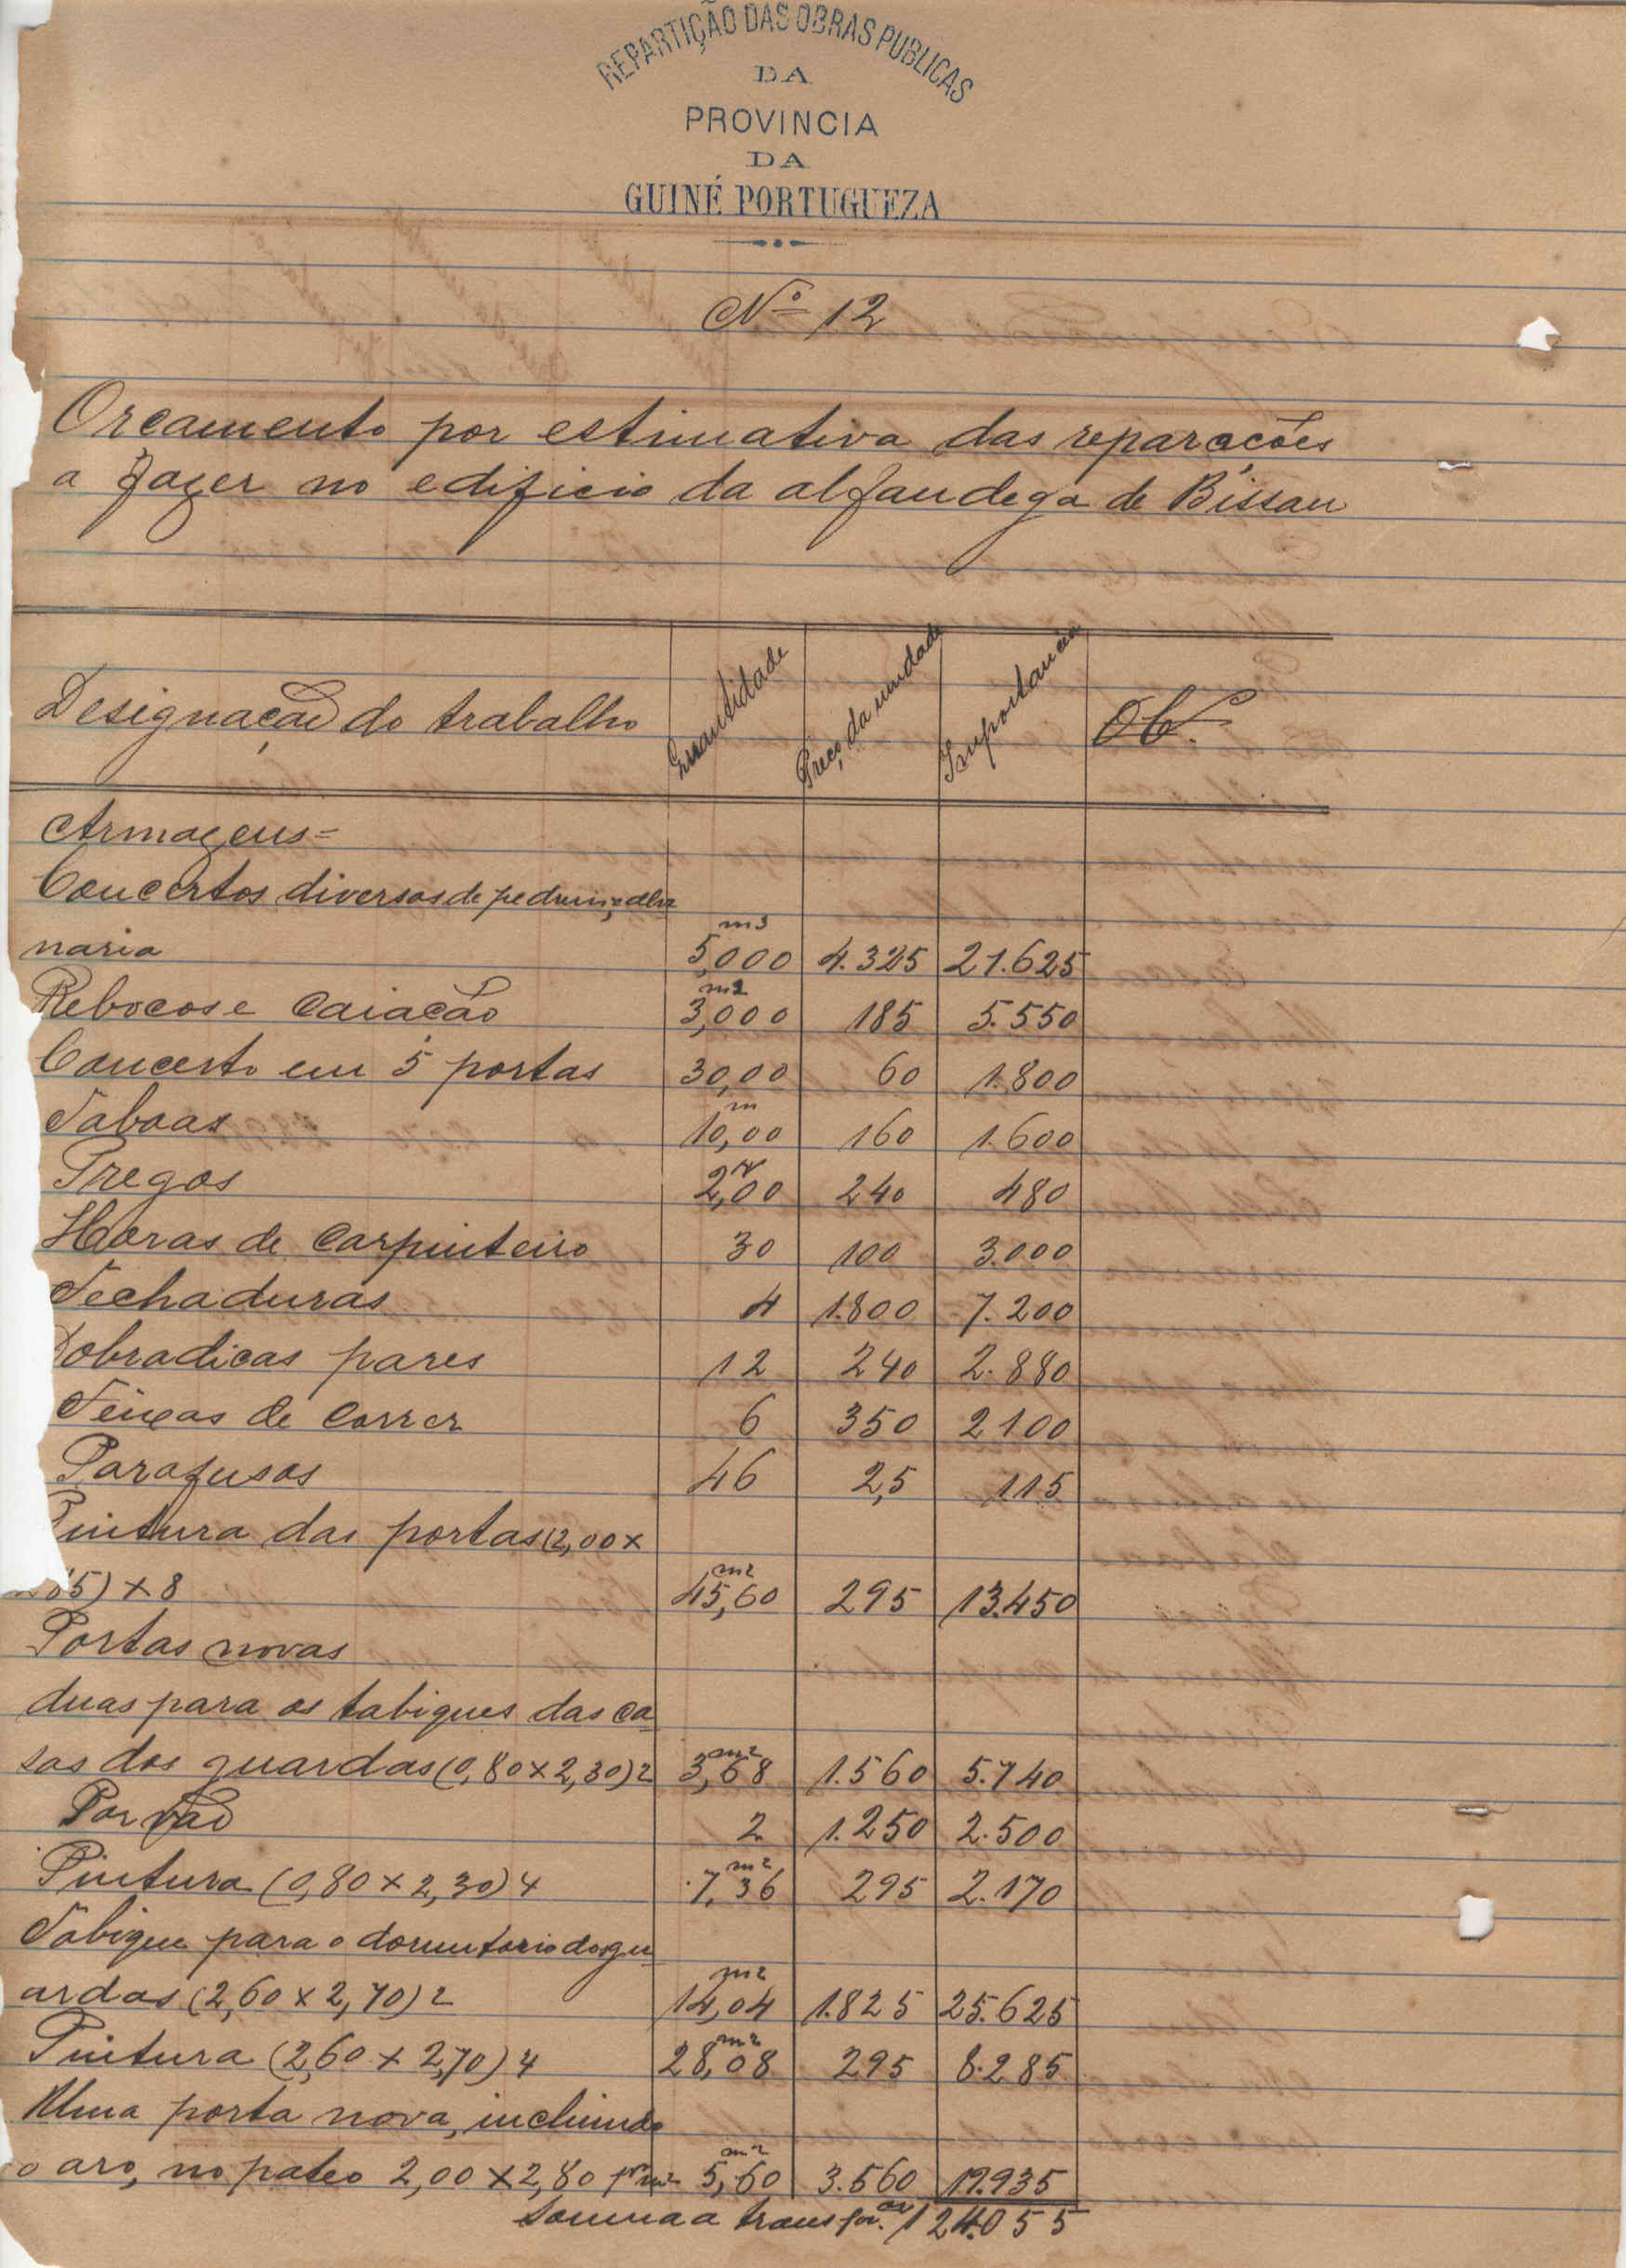 REPARTIÇÃO DAS OBRAS PUBLICAS
DA
PROVINCIA
DA
GUINÉ PORTUGUEZA
Nº 12
Orcamento por estimativa das reparações
a fazer no edificio da alfandega de Bissau
Designação do trabalho Quantidade Preço da unidade Importancia Obs.
Armazens=
Concertos diversos de pedra, e alve
naria m3 5,000 4.325 21.625
Rebocos e Caiação m2 3,000 185 5.550
Concerto em 5 portas 30,00 60 1.800
Taboas m 10,00 160 1.600
Pregos 2,00 240 480
Horas de Carpinteiro 30 100 3.000
Fechaduras 4 1.800 7.200
Dobradicas pares 12 240 2.880
Feixas de Correr 6 350 2100
Parafusos 46 2,5 115
Pintura das portas (2,00 x
85) x 8 m2 45,60 295 13.450
Portas novas
duas para os tabiques das ca
sas dos guardas (0,80 x 2,30) 2 m2 3,68 1.560 5.740
Por vão 2 1.250 2.500
Pintura (0,80 x 2,30) 4 m2 7,36 295 2.170
Tabique para o dormitorio dos gu
ardas (2,60 x 2,70) 2 m2 14,04 1.825 25.625
Pintura (2,60 x 2,70) 4 m2 28,08 295 8.285
Uma porta nova, incluindo
o aro, no pateo 2,00 x 2,80 pr m2 m2 5,60 3.560 19.935
Somma a transpor 124.055